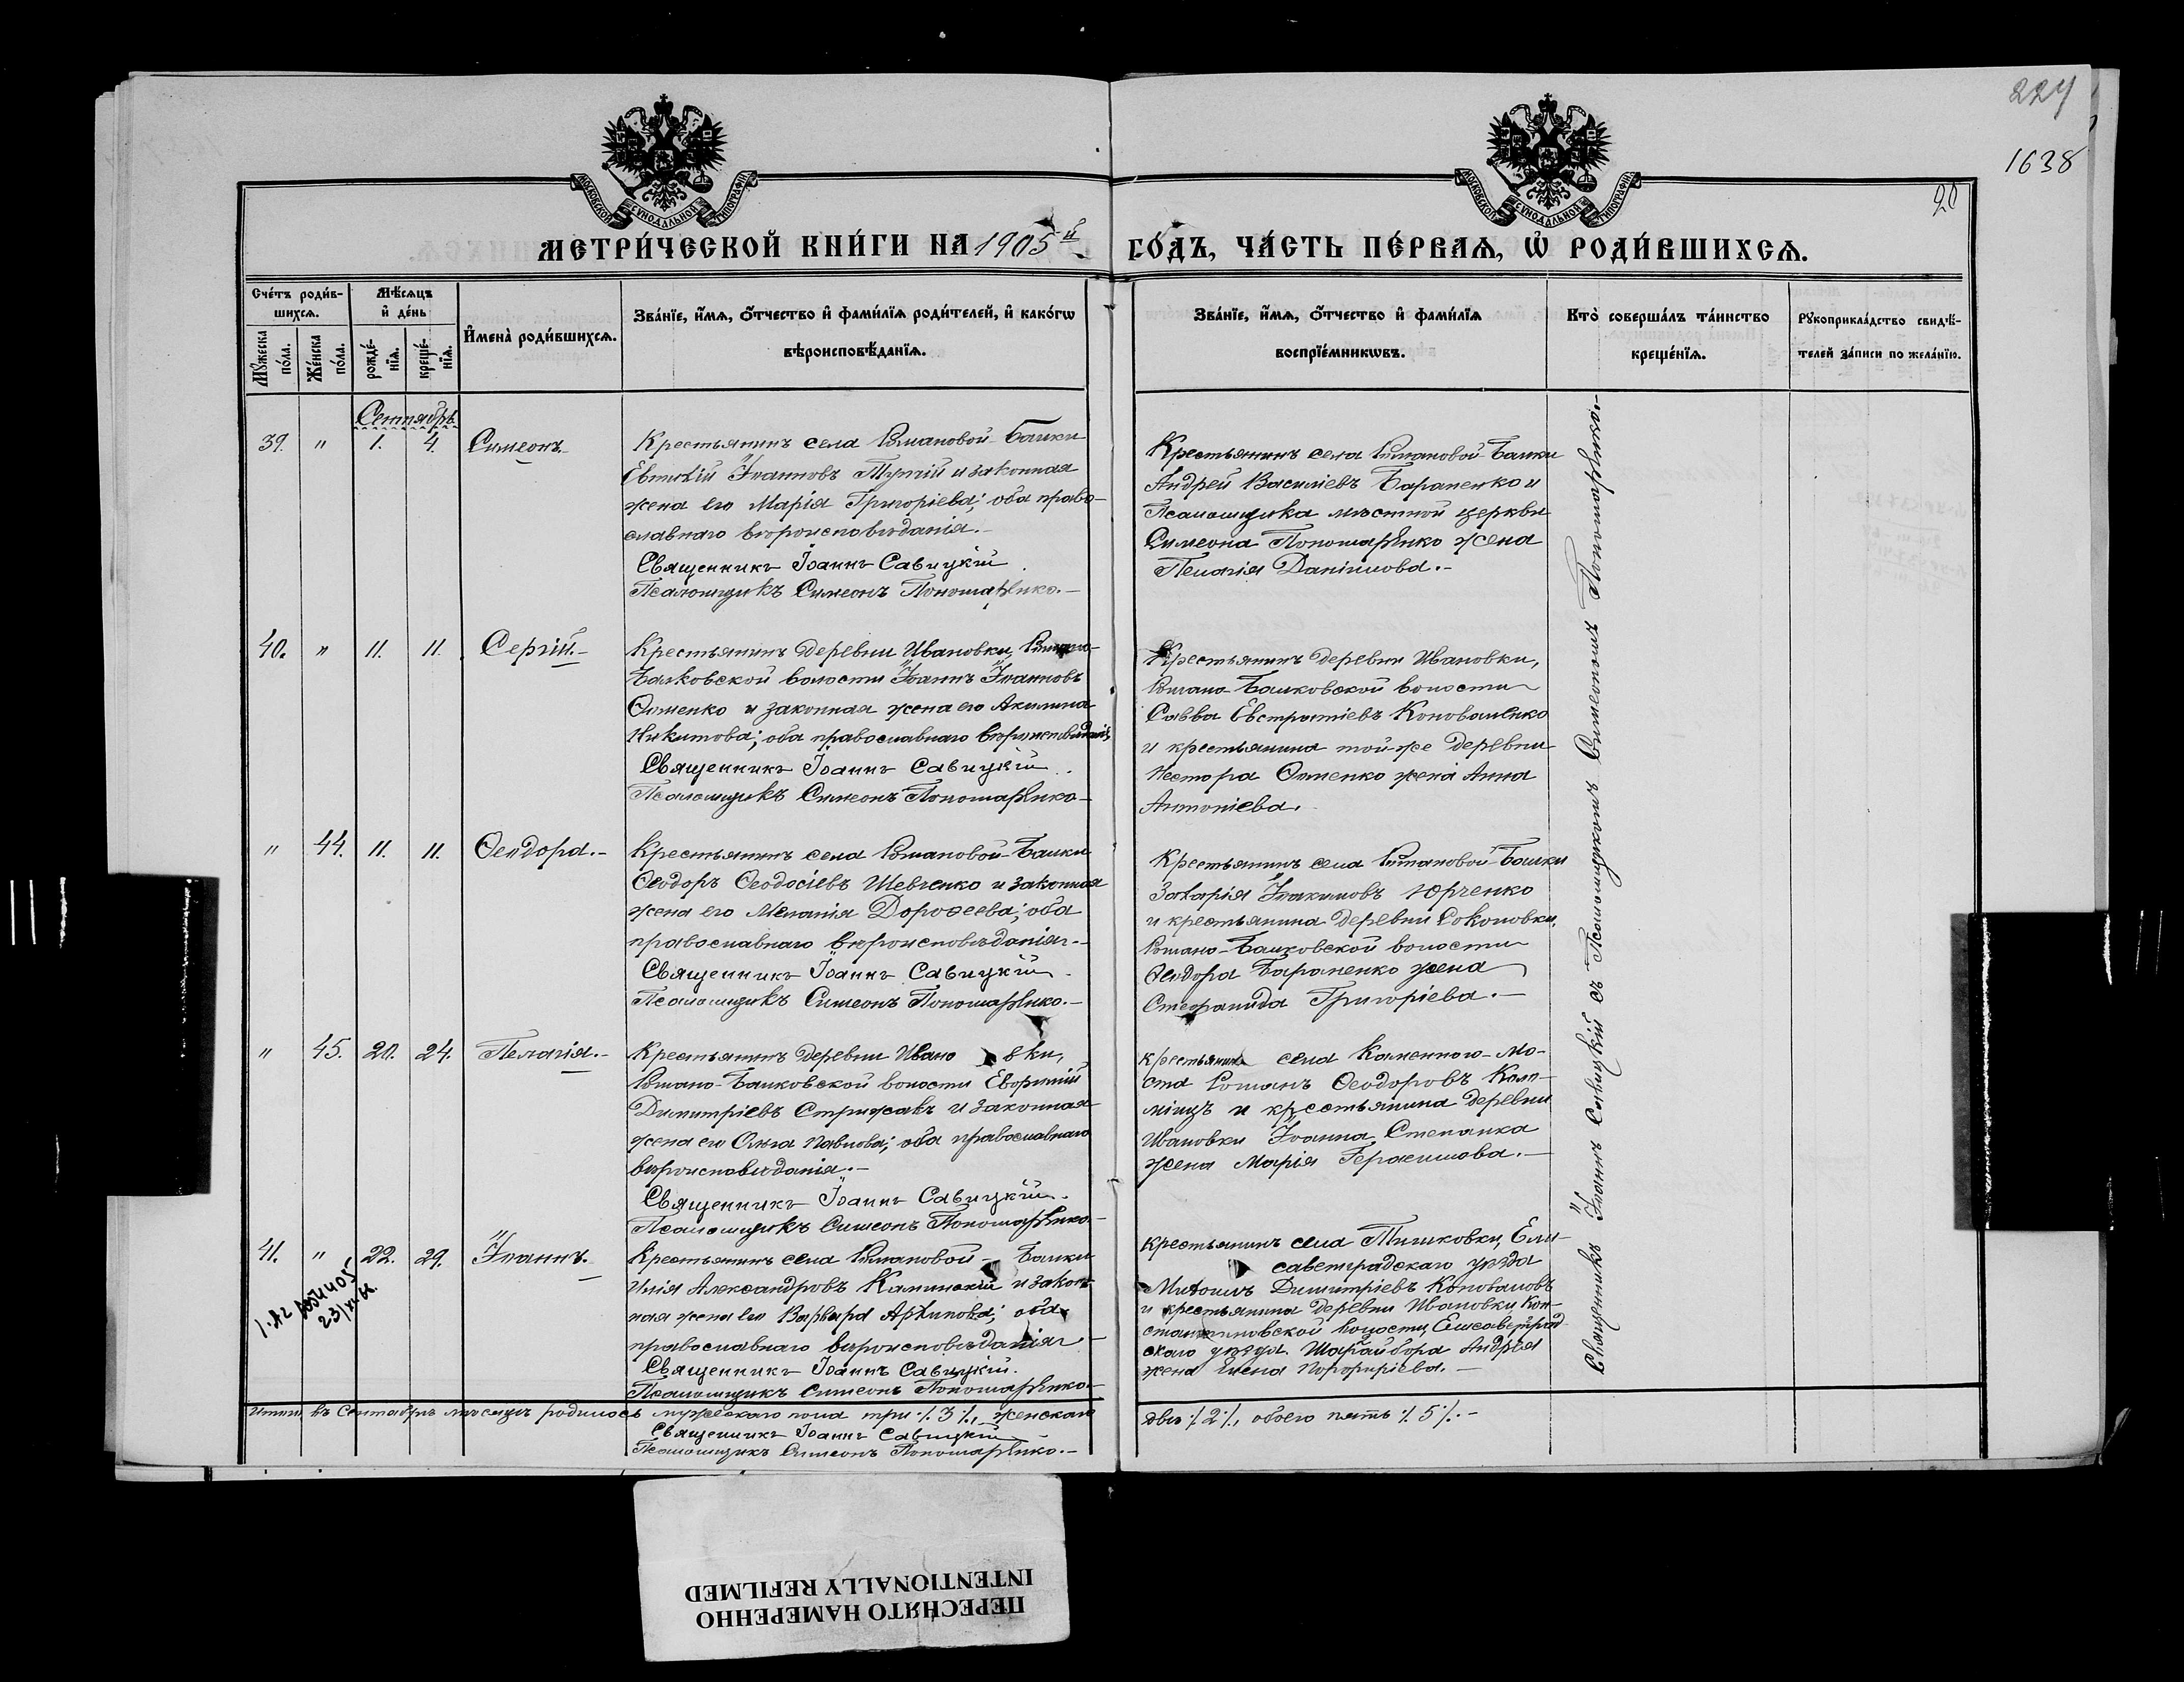 224
1638
20
МОСКОВСКОЙ СУНОДАЛЬНОЙ ТИПОГРАФІИ
МОСКОВСКОЙ СУНОДАЛЬНОЙ ТИПОГРАФІИ
МЕТРИ́ЧЕСКОЙ КНИ́ГИ НА 1905й
ГО́ДЪ, ЧА́СТЬ ПЕ́РВАѦ, Ѡ҆ РОДИ́ВШИХСѦ.
Сче́тъ роди́в-
шихсѧ.
Мꙋжеска по́ла.
Же́нска по́ла.
Мѣ́сѧцъ
и҆ де́нь
рожде́-
нїѧ.
креще́-
нїѧ.
И҆мена̀ роди́вшихсѧ.
Зва́нїе, и҆́мѧ, ѻ҆́тчество и҆ фами́лїѧ роди́телей, и҆ како́гѡ
вѣроисповѣ́данїѧ.
Зва́нїе, и҆́мѧ, ѻ҆́тчество и҆ фами́лїѧ
воспрїе́мникѡвъ.
Кто̀ соверша́лъ та́инство
креще́нїѧ.
Рꙋкоприкла́дство свидѣ́-
телей за́писи по жела́нїю.
Сентябрь
39. " 1. 4. Симеонъ.-
Крестьянинъ села Романовой-Балки
Евтихій Іоанновъ и законная
жена его Марія Григоріева; оба право-
славнаго вѣроисповѣданія.-
Священникъ Іоаннъ Савицкій.
Псаломщикъ Симеонъ Пономаренко.-
Крестьянинъ села Романовой-Балки
Андрей Василіевъ Бараненко и
Псаломщика мѣстной церкви
Симеона Пономаренко жена
Пелагія Даніилова.-
40. " 11. 11. Сергій.-
Крестьянинъ деревни Ивановки, Романо-
Балковской волости Іоаннъ Іоанновъ
и законная жена его Акилина
Никитова; оба православнаго вѣроисповѣданія.
Священникъ Іоаннъ Савицкій.
Псаломщикъ Симеонъ Пономаренко-
Крестьянинъ деревни Ивановки,
Романо-Балковской волости
Савва Евстратіевъ Коноваленко
и крестьянина той-же деревни
Нестора жена Анна
Антоніева.
" 44. 11. 11. Ѳеодора.-
Крестьянинъ села Романовой-Балки
Ѳеодоръ Ѳеодосіевъ Шевченко и законная
жена его Меланія Дороѳеева; оба
православнаго вѣроисповѣданія.-
Священникъ Іоаннъ Савицкій.
Псаломщикъ Симеонъ Пономаренко.-
Крестьянинъ села Романовой-Балки
Захарія Іоакимовъ Юрченко
и крестьянина деревни Соколовки,
Романо-Балковской волости
Ѳеодора Бараненко жена
Стефанида Григоріева.-
" 45. 20. 24. Пелагія.-
Крестьянинъ деревни Ивановки,
Романо-Балковской волости Евфимій
Димитріевъ Стрижакъ и законная
жена его Ольга Павлова; оба православнаго
вѣроисповѣданія.-
Священникъ Іоаннъ Савицкій.
Псаломщикъ Симеонъ Пономаренко.-
Крестьянинъ села Каменнаго-Мо-
ста Романъ Ѳеодоровъ Коло-
міецъ и крестьянина деревни
Ивановки Іоанна Степанка
жена Марія Герасимова.-
41. " 22. 29. Іоаннъ.-
Крестьянинъ села Романовой-Балки
Илія Александровъ Калинскій и закон-
ная жена его Варвара Архипова; оба
православнаго вѣроисповѣданія-
Священникъ Іоаннъ Савицкій.
Псаломщикъ Симеонъ Пономаренко.-
Крестьянинъ села Тишковки, Ели-
саветградскаго уѣзда
Димитріевъ Коноваловъ
и крестьянина деревни Ивановки Кон-
стантиновской волости, Елисаветград-
скаго уѣзда Андрея
жена Елена Порфиріева.-
Священникъ Іоаннъ Савицкій съ Псаломщикомъ Симеономъ Пономаренко.-
Итого въ Сентябрѣ мѣсяцѣ родилось мужескаго пола три ⁒ 3 ⁒, женскаго
два ⁒ 2 ⁒, обоего пять ⁒ 5 ⁒.-
Священникъ Іоаннъ Савицкій
Псаломщикъ Симеонъ Пономаренко.-
ПЕРЕСНЯТО НАМЕРЕННО
INTENTIONALLY REFILMED